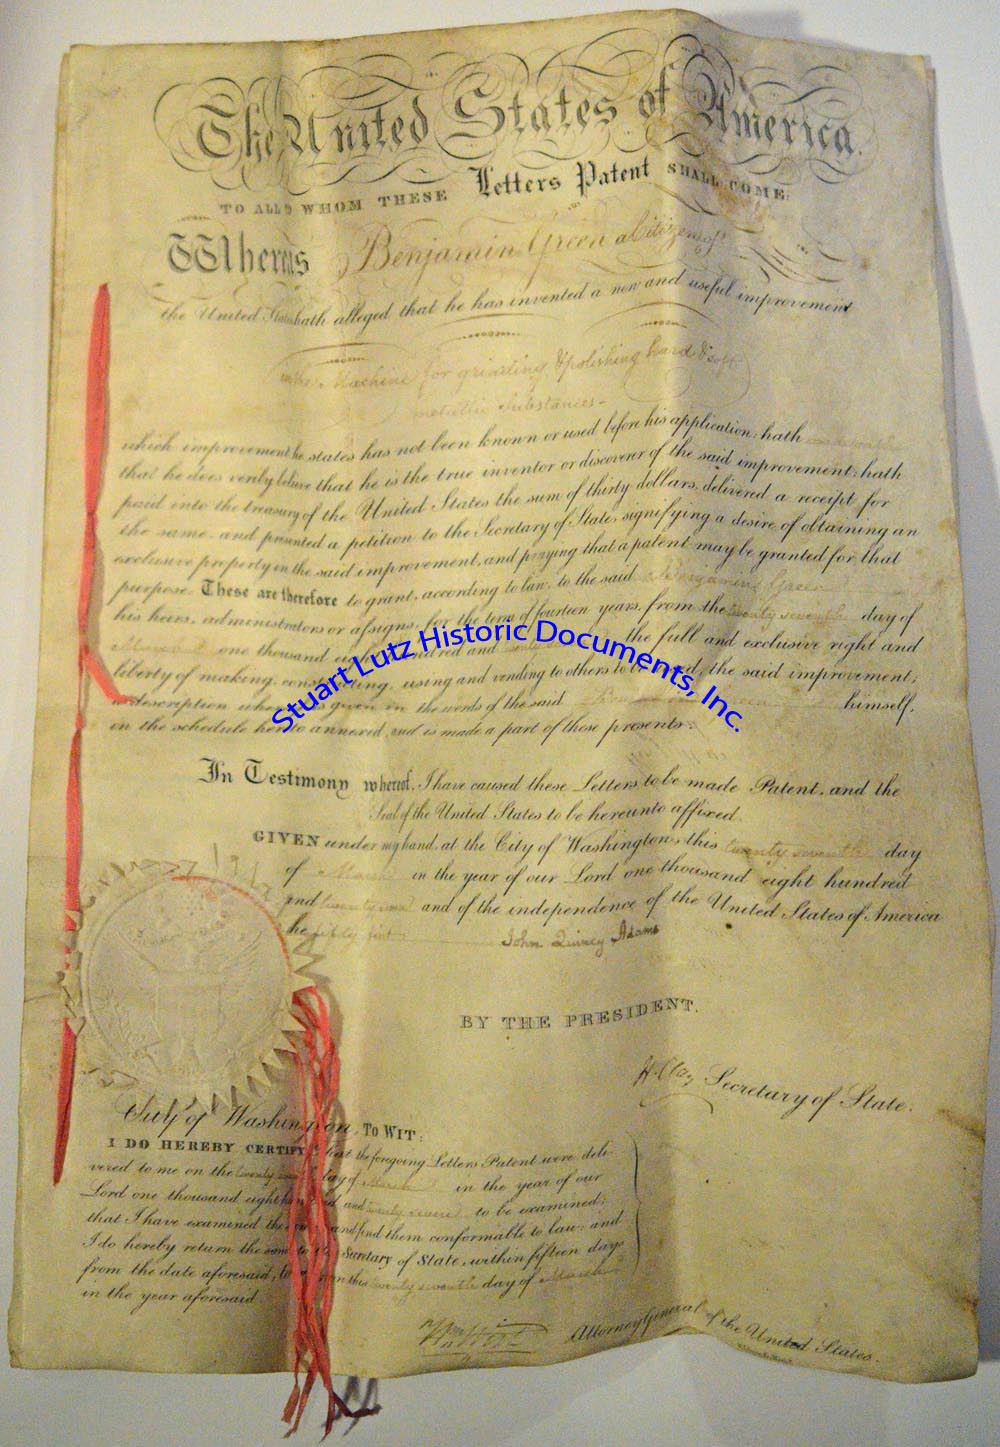 The United States of America.
TO ALL TO WHOM THESE Letters Patent SHALL COME:
Whereas Benjamin Green a Citizen of
the United States hath alleged that he has invented a new and useful improvement
in the Machine for grinding & polishing hard & soft
metallic Substances
which improvement he states has not been known or used before his application; hath
that he does verily believe that he is the true inventor or discoverer of the said improvement; hath
paid into the treasury of the United States the sum of thirty dollars, delivered a receipt for
the same, and presented a petition to the Secretary of State, signifying a desire of obtaining an
exclusive property in the said improvement, and praying that a patent may be granted for that
purpose. These are therefore to grant, according to law, to the said Benjamin Green
his heirs, administrators or assigns, for the term of fourteen years, from the twenty seventh day of
March one thousand eight hundred and the full and exclusive right and
liberty of making, constructing, using and vending to others to be used, the said improvement;
a description whereof is given in the words of the said Benjamin Green himself,
in the schedule hereto annexed, and is made a part of these presents.
In Testimony whereof, I have caused these Letters to be made Patent, and the
Seal of the United States to be hereunto affixed.
GIVEN under my hand, at the City of Washington, this twenty seventh day
of March in the year of our Lord one thousand eight hundred
and and of the independence of the United States of America
the fifty first.
John Quincy Adams
BY THE PRESIDENT.
H. Clay Secretary of State.
City of Washington, TO WIT:
I DO HEREBY CERTIFY, that the foregoing Letters Patent were deli
vered to me on the twenty seventh day of March in the year of our
Lord one thousand eight hundred and twenty seven to be examined;
that I have examined the same, and find them conformable to law; and
I do hereby return the same to the Secretary of State, within fifteen days
from the date aforesaid, to wit: on this twenty seventh day of March
in the year aforesaid.
Wm Wirt Attorney General of the United States.
Stuart Lutz Historic Documents, Inc.